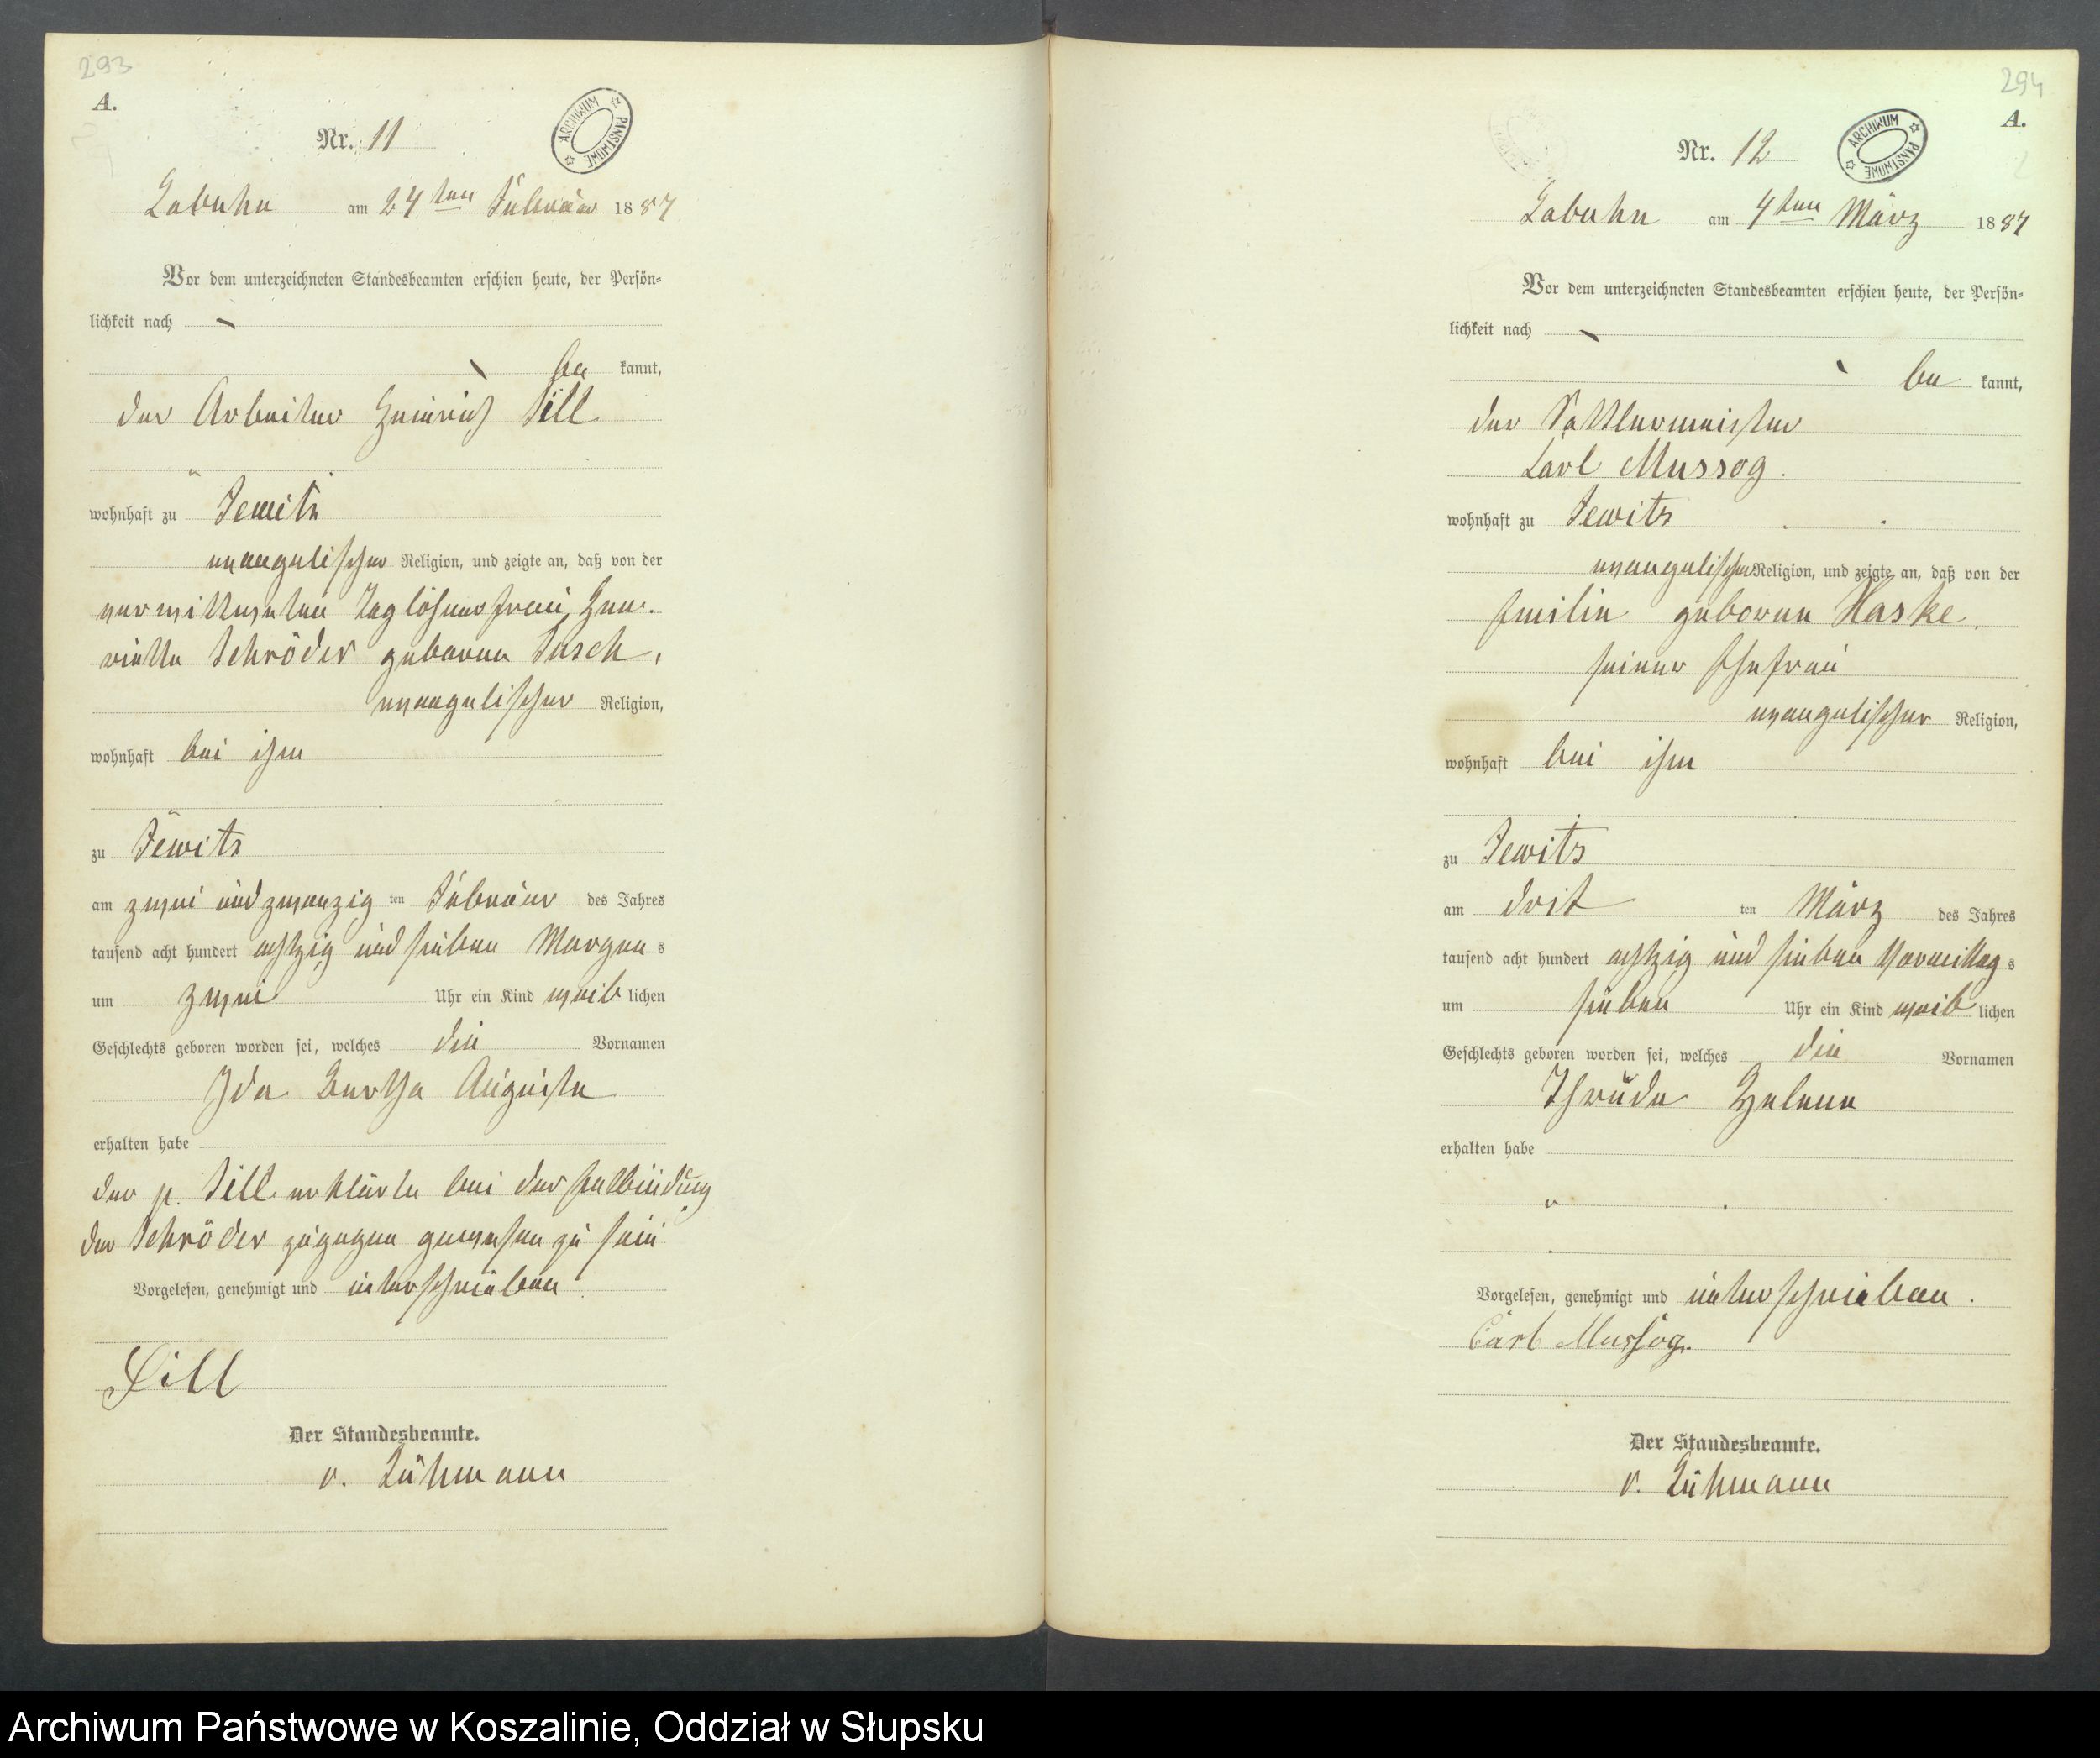 293
A.
Nr. 11
ARCHIWUM PAŃSTWOWE
Labuhn am 24ten Februar 1887
Vor dem unterzeichneten Standesbeamten erschien heute, der Persön-
lichkeit nach
be kannt,
der Arbeiter Heinrich Sill
wohnhaft zu Jewitz
evangelischer Religion, und zeigte an, daß von der
verwittweten Taglöhnerfrau, Hen-
riette Schröder geborene
evangelischer Religion,
wohnhaft bei ihm
zu Jewitz
am zwei und zwanzig ten Februar des Jahres
tausend acht hundert achtzig und sieben Morgen s
um zwei Uhr ein Kind weib lichen
Geschlechts geboren worden sei, welches die Vornamen
Ida Bertha Auguste
erhalten habe
der p. Sill erklärte bei der Entbindung
der Schröder zugegen gewesen zu sein
Vorgelesen, genehmigt und unterschrieben
Sill
Der Standesbeamte.
v. Lühmann
294
A.
Nr. 12
ARCHIWUM PAŃSTWOWE
Labuhn am 4ten März 1887
Vor dem unterzeichneten Standesbeamten erschien heute, der Persön-
lichkeit nach
be kannt,
der Sattlermeister
Carl Mussog.
wohnhaft zu Jewitz
evangelischer Religion, und zeigte an, daß von der
Emilie geborene Haske,
seiner Ehefrau
evangelischer Religion,
wohnhaft bei ihm
zu Jewitz
am drit ten März des Jahres
tausend acht hundert achtzig und sieben Vormittag s
um sieben Uhr ein Kind weib lichen
Geschlechts geboren worden sei, welches die Vornamen
Thrude Helene
erhalten habe
Vorgelesen, genehmigt und unterschrieben.
Carl Mussog.
Der Standesbeamte.
v. Lühmann
Archiwum Państwowe w Koszalinie, Oddział w Słupsku